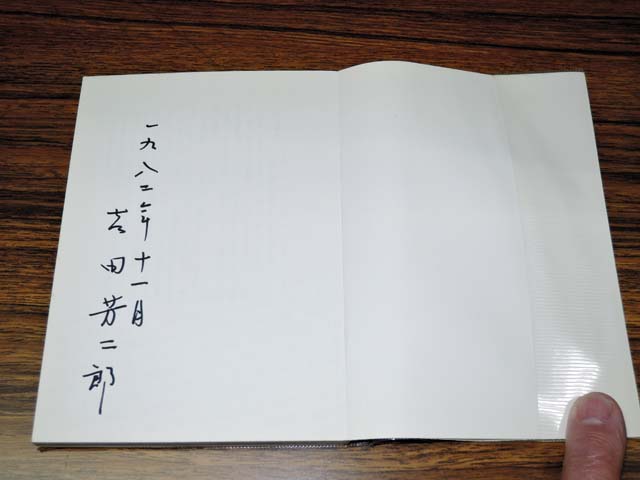 一九八二年十一月
吉田芳二郎